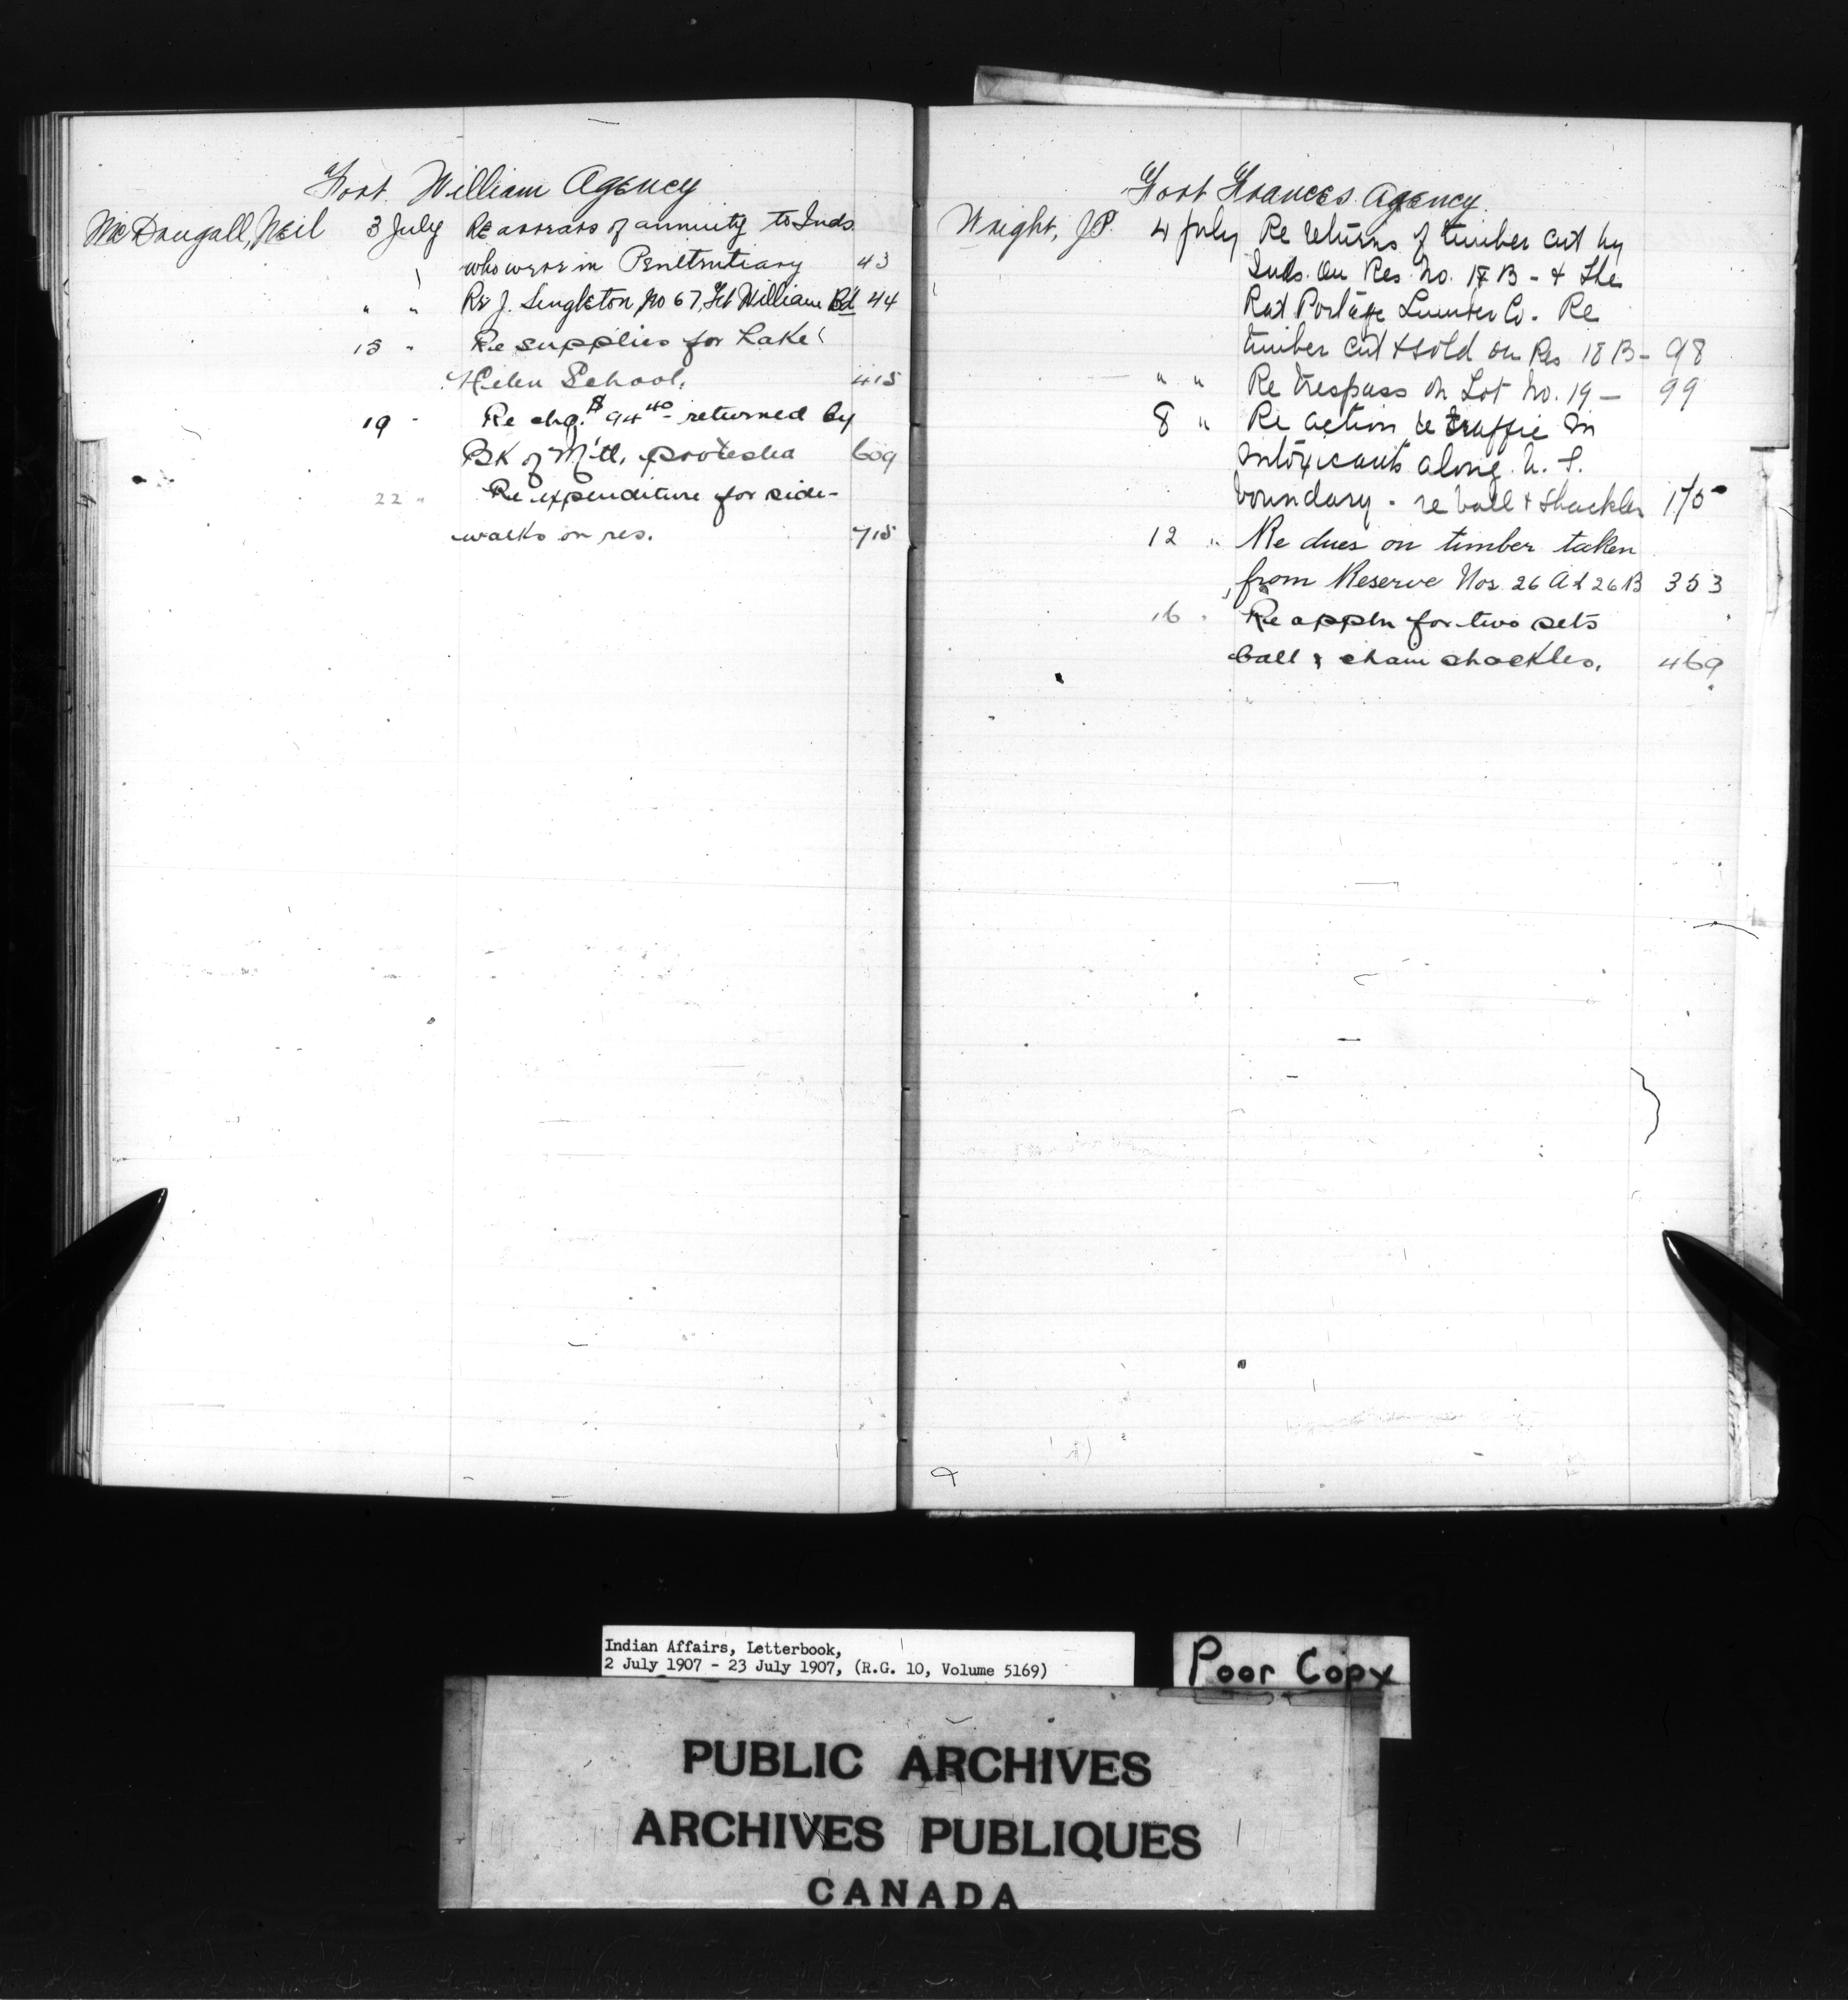 Fort William Agency
McDougall, Neil 3 July Re arrears of annuity to Inds.
who were in Penitentiary 43
" " Re J. Singleton, No 67, Ft William Bd 44
15 " Re supplies for Lake
Helen School. 415
19 " Re chq. $94.40 returned by
Bk of M'tl, protested 609
22 " Re expenditure for side-
walks on res. 715
Fort Frances Agency.
Wright, J.P. 4 July Re returns of timber cut by
Inds. on Res. No. 18 B - & the
Rat Portage Lumber Co. Re
timber cut & sold on Res 18 B - 98
" " Re trespass on Lot No. 19 - 99
8 " Re action re traffic in
intoxicants along U. S.
boundary - re ball & shackles 175
12 " Re dues on timber taken
from Reserve Nos. 26 A & 26 B 353
16 " Re appln for two sets
ball & chain shackles. 469
Indian Affairs, Letterbook,
2 July 1907 - 23 July 1907, (R.G. 10, Volume 5169)
Poor Copy
PUBLIC ARCHIVES
ARCHIVES PUBLIQUES
CANADA